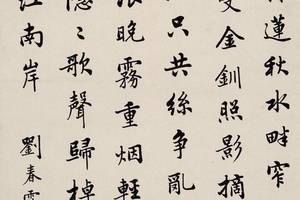 蓮秋水畔窄
金釧照影摘
只共絲争亂
浪晚霧重烟輕
隱〻歌聲歸棹
江南岸 劉春